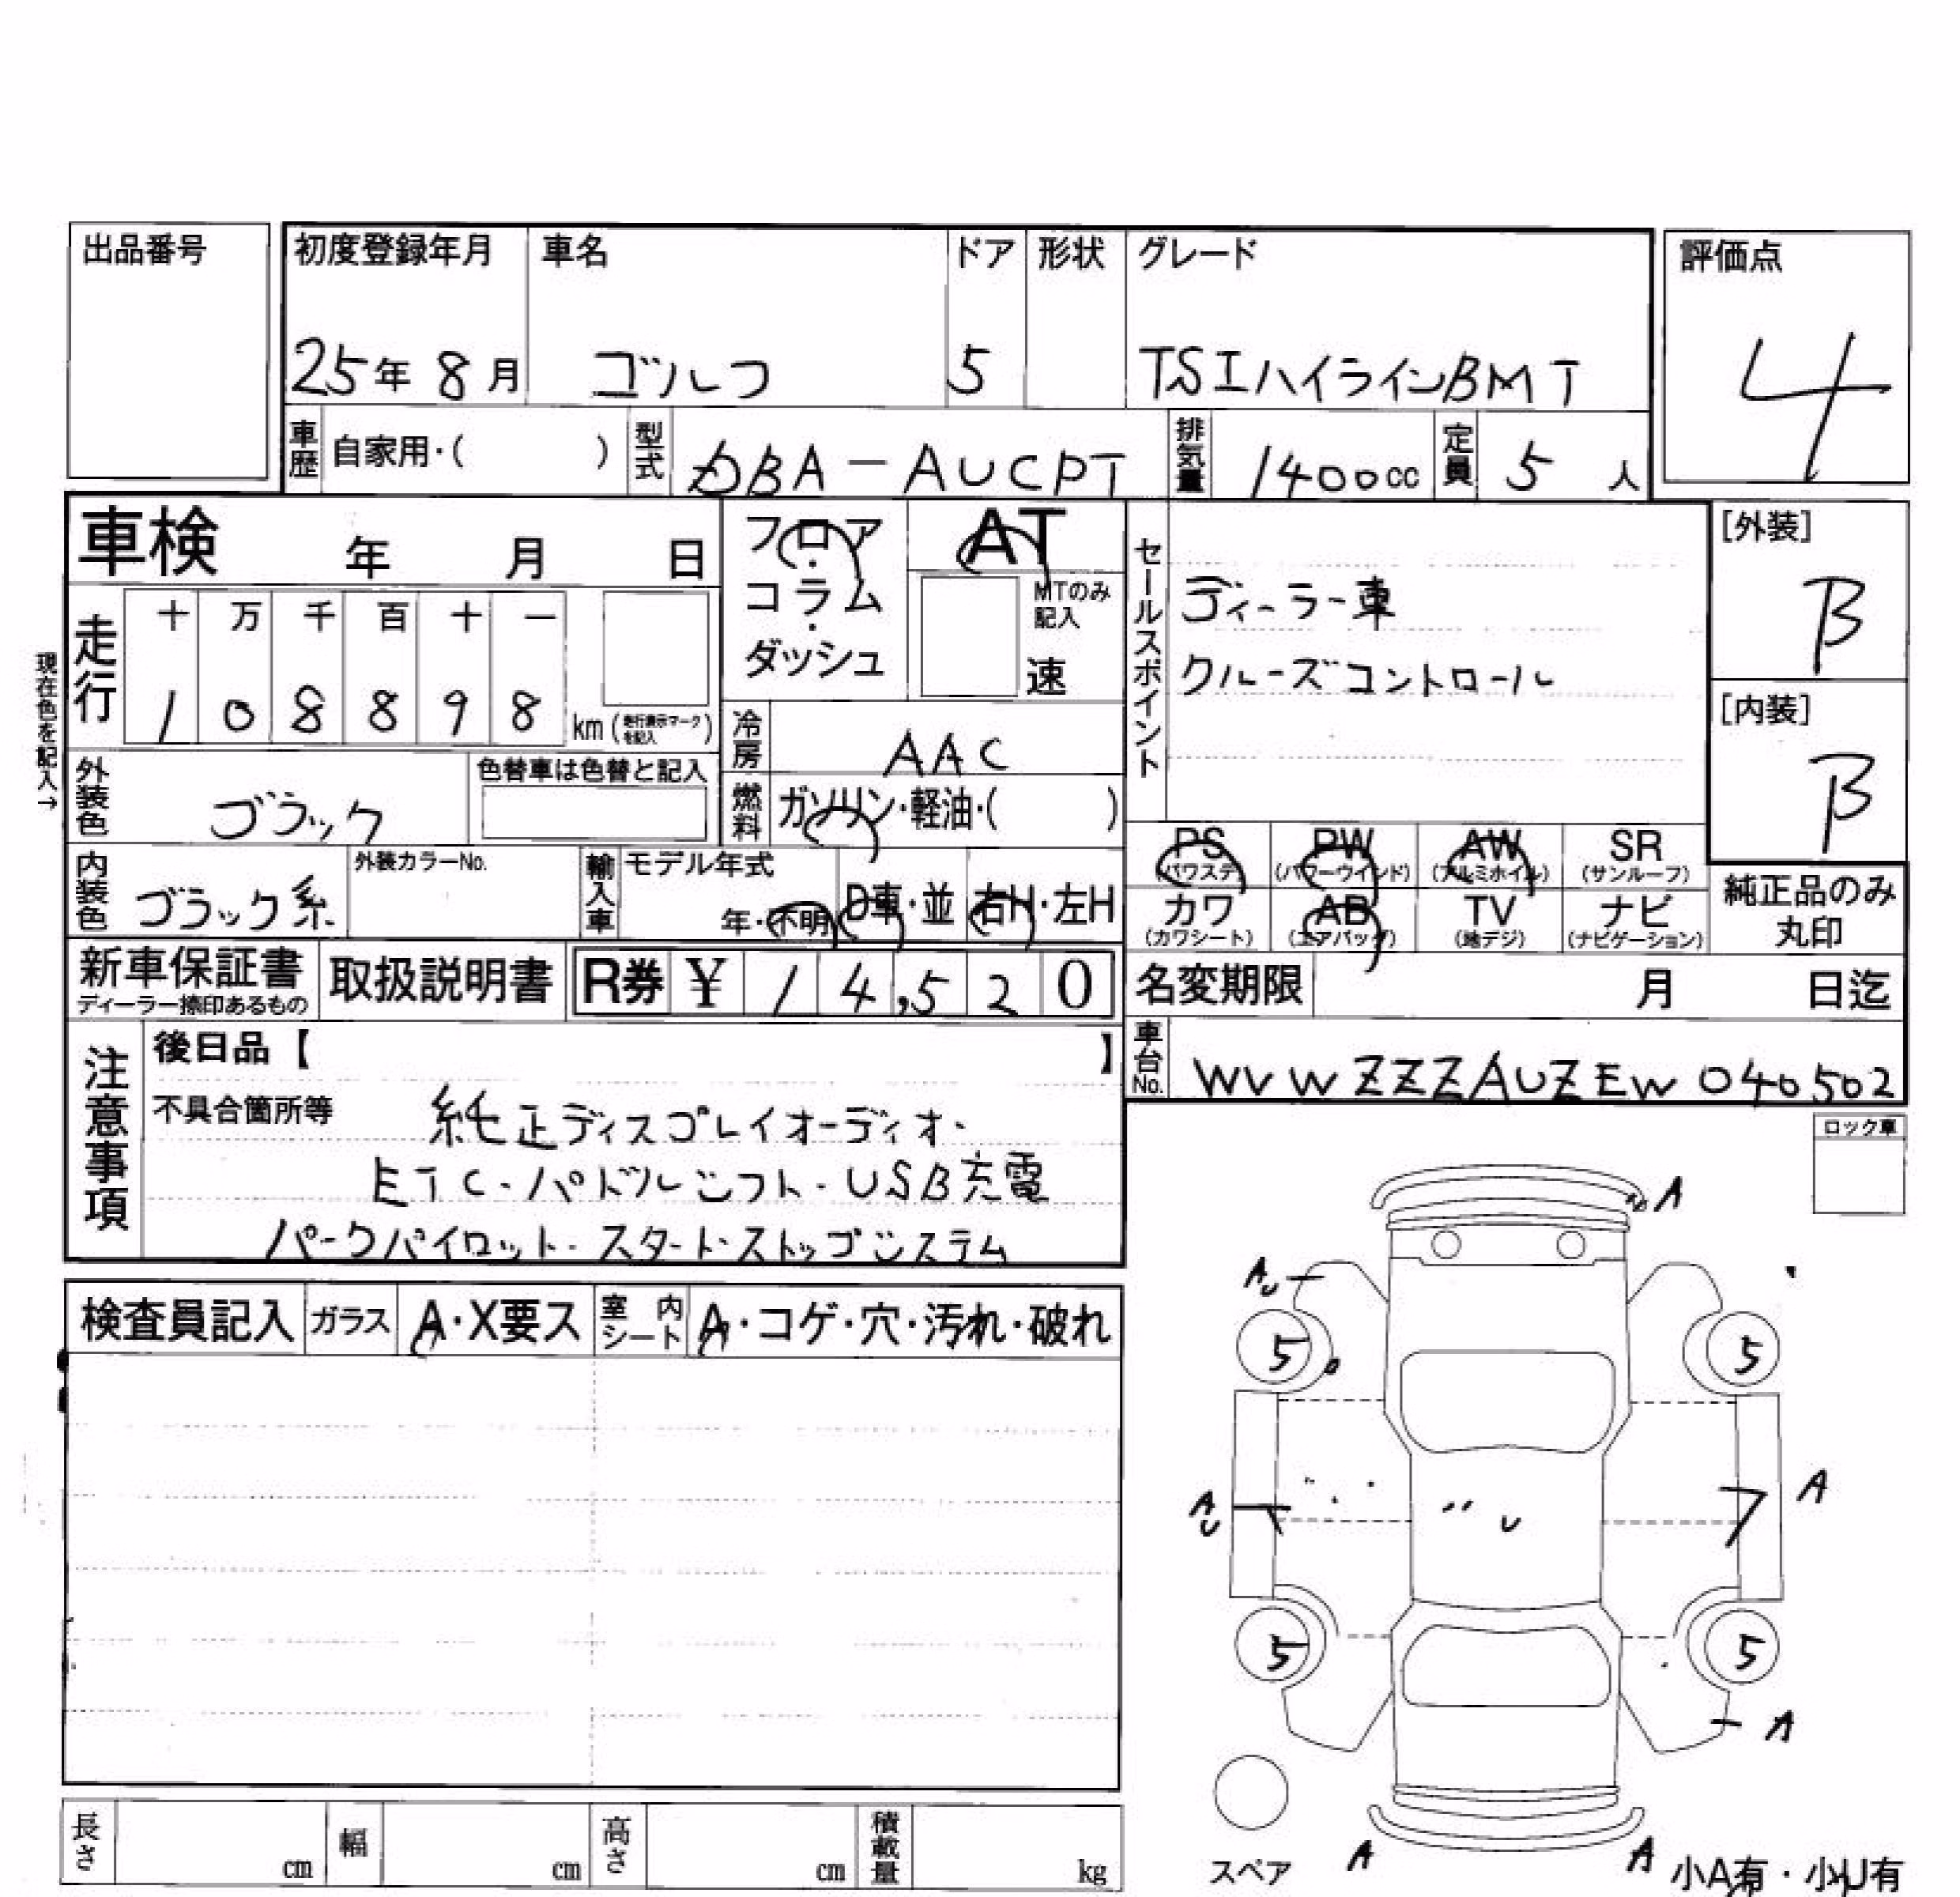 出品番号
初度登録年月 車名 ドア 形状 グレード 評価点
25年 8月 ゴルフ 5 TSIハイラインBMT 4
車歴 自家用・( ) 型式 DBA-AUCPT 排気量 1400cc 定員 5人
車検 年 月 日
フロア・コラム・ダッシュ
AT
MTのみ記入
速
セールスポイント
ディーラー車
クルーズコントロール
[外装]
B
[内装]
B
現在色を記入→
走行 十 万 千 百 十 一
1 0 8 8 9 8 km (走行表示マークを記入)
冷房 AAC
外装色 ブラック 色替車は色替と記入
燃料 ガソリン・軽油・( )
内装色 ブラック系 外装カラーNo. 輸入車 モデル年式 年・不明 D車・並 右H・左H
PS (パワステ) PW (パワーウインド) AW (アルミホイル) SR (サンルーフ)
カワ (カワシート) AB (エアバッグ) TV (地デジ) ナビ (ナビゲーション)
純正品のみ丸印
新車保証書 ディーラー捺印あるもの 取扱説明書 R券 ¥ 14,520
名変期限 月 日迄
車台No. WVWZZZAUZEW040502
注意事項
後日品【 】
不具合箇所等 純正ディスプレイオーディオ・
ETC・パドルシフト・USB充電
パークパイロット・スタート・ストップシステム
ロック車
検査員記入 ガラス A・X要ス 室内シート A・コゲ・穴・汚れ・破れ
A
AU
5 5
AU U A
5 5
A
スペア A A 小A有・小U有
長さ cm 幅 cm 高さ cm 積載量 kg